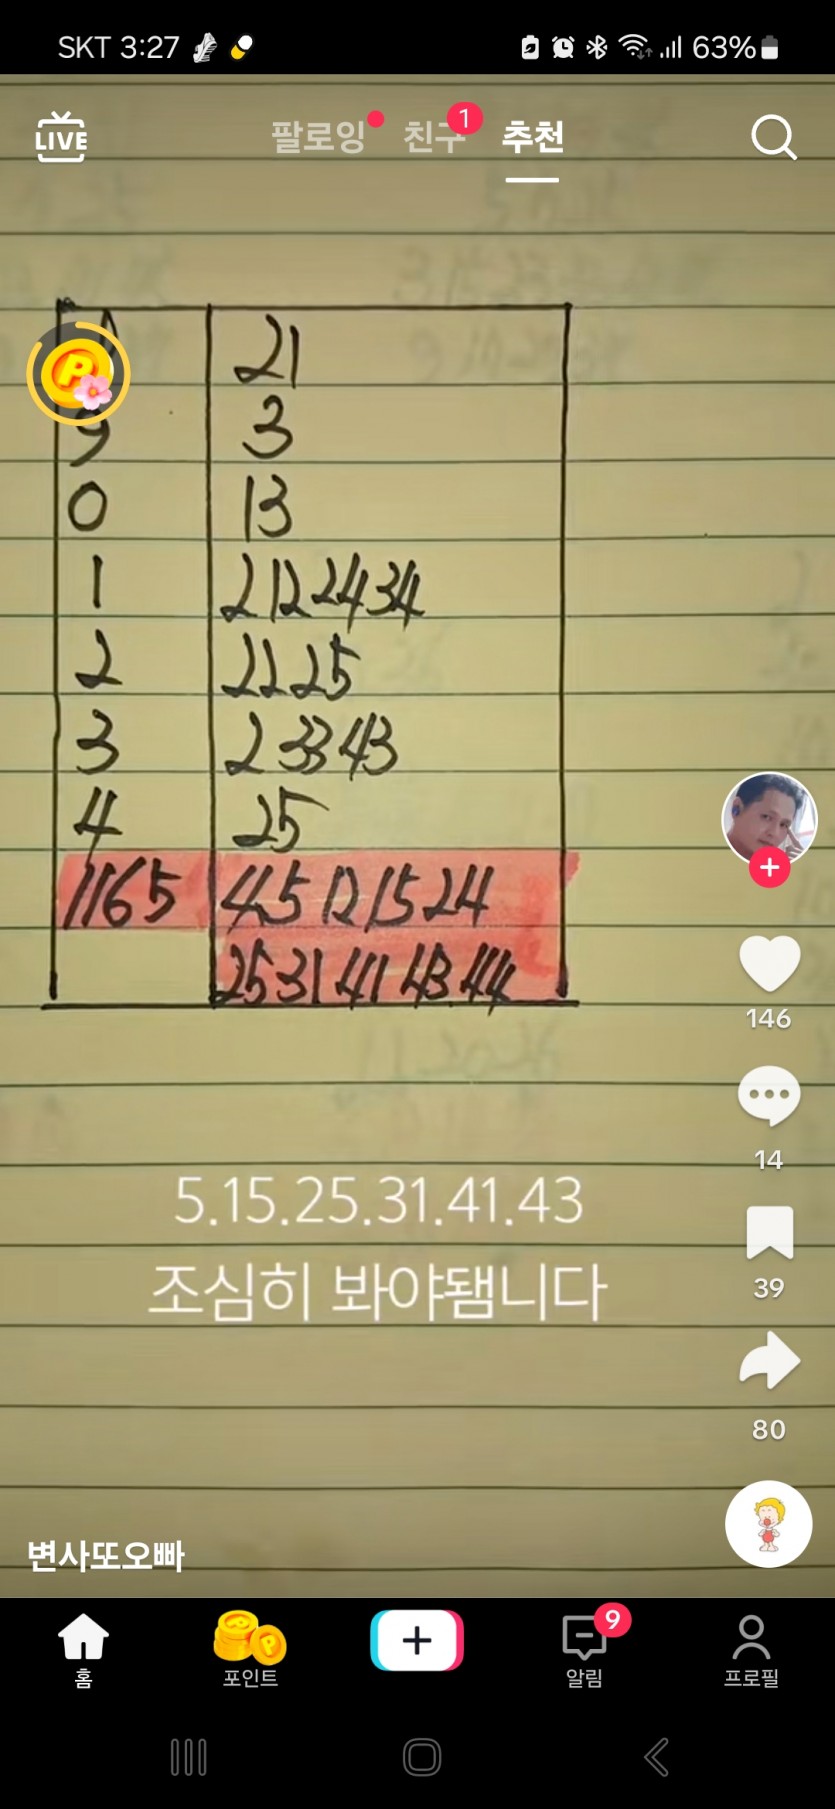 SKT 3:27 63%
LIVE 팔로잉 친구 1 추천
21
9 3
0 13
1 2 12 24 34
2 22 25
3 2 33 43
4 25
1165 4 5 12 15 24
25 31 41 43 44
146
14
5.15.25.31.41.43
조심히 봐야됌니다
39
80
변사또오빠
홈 포인트 알림 9 프로필